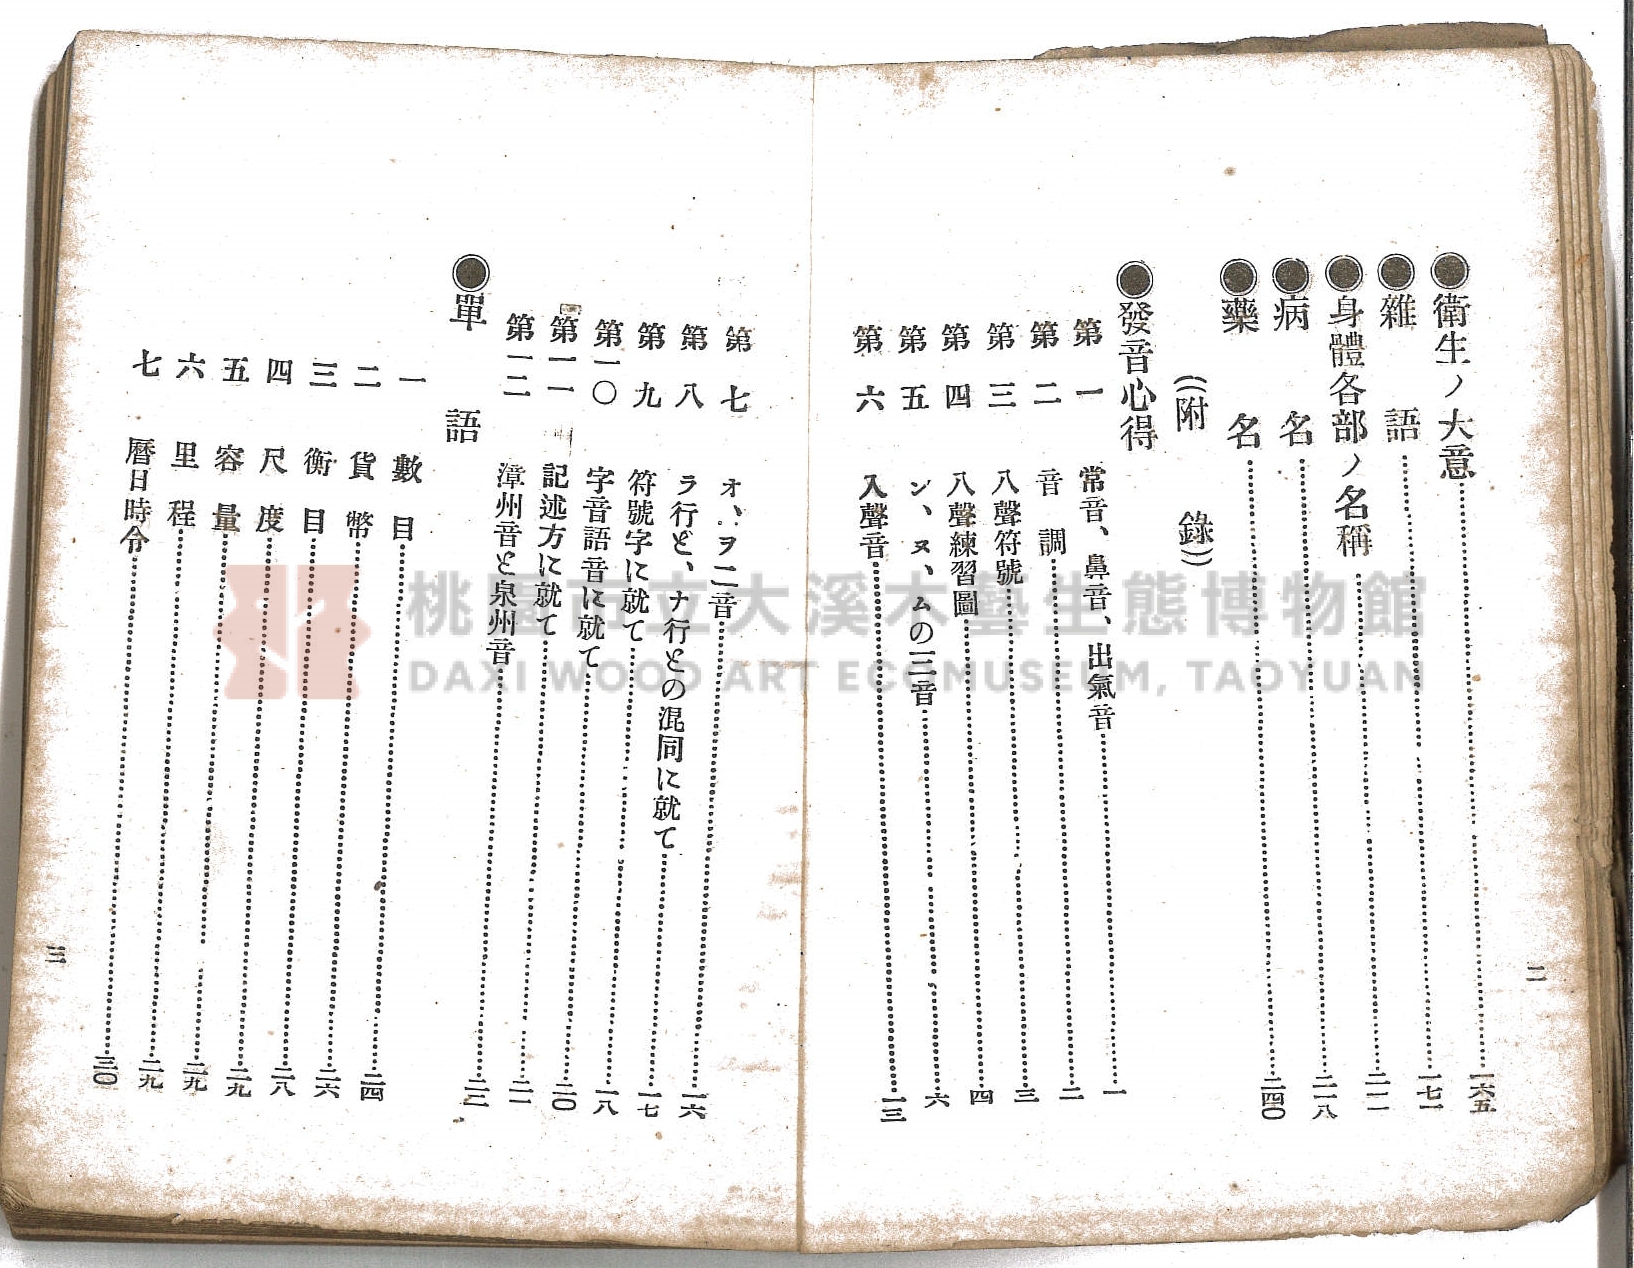 ●衛生ノ大意……一六五
●雜語……一七一
●身體各部ノ名稱……二一一
●病名……二一八
●藥名……二四〇
(附錄)
●發音心得
第一 常音、鼻音、出氣音……一
第二 音調……二
第三 八聲符號……三
第四 八聲練習圖……四
第五 ン、ヌ、ムの三音……六
第六 入聲音……一三
二
第七 オ、ヲ二音……一六
第八 ラ行と、ナ行との混同に就て……一七
第九 符號字に就て……一八
第一〇 字音語音に就て……二〇
第一一 記述方に就て……二一
第一二 漳州音と泉州音……二三
●單語
一 數目……二四
二 貨幣……二六
三 衡目……二八
四 尺度……二九
五 容量……二九
六 里程……二九
七 曆日時令……三〇
三
桃園市立大溪木藝生態博物館
DAXI WOOD ART ECOMUSEUM, TAOYUAN